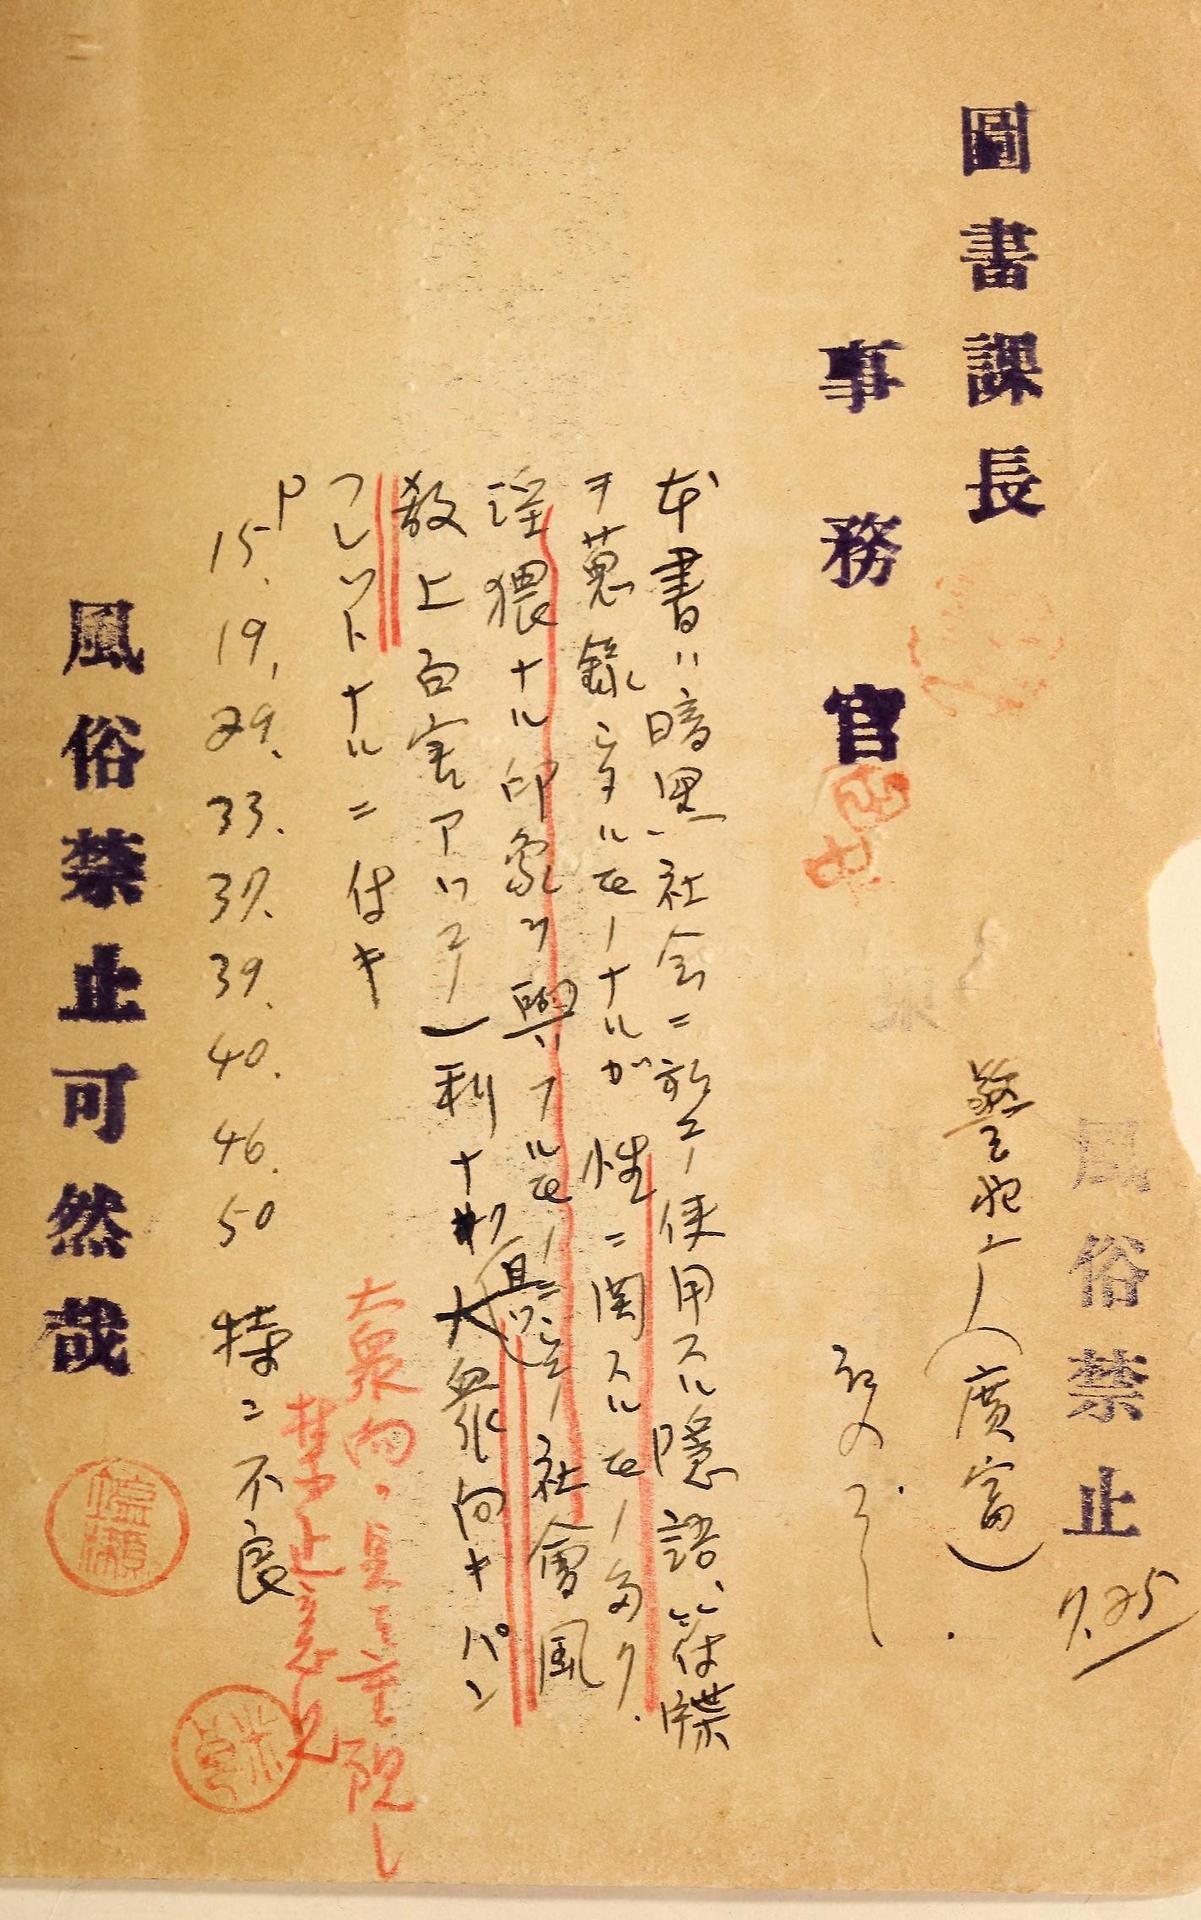 風俗禁止
7.25
圖書課長
警視庁(廣富)
事務官
本書ハ暗黒社会ニ於テ使用スル隠語、符牒
ヲ蒐録シタルモノナルガ性ニ関スルモノ多ク.
淫猥ナル印象ヲ與フルモノニシテ社會風
教上百害アツテ一利ナク且ツ大衆向キパン
フレットナルニ付キ
大衆向、
重視し
禁止意見
P
15. 19, 29. 33. 37. 39. 40. 46. 50 特ニ不良
風俗禁止可然哉